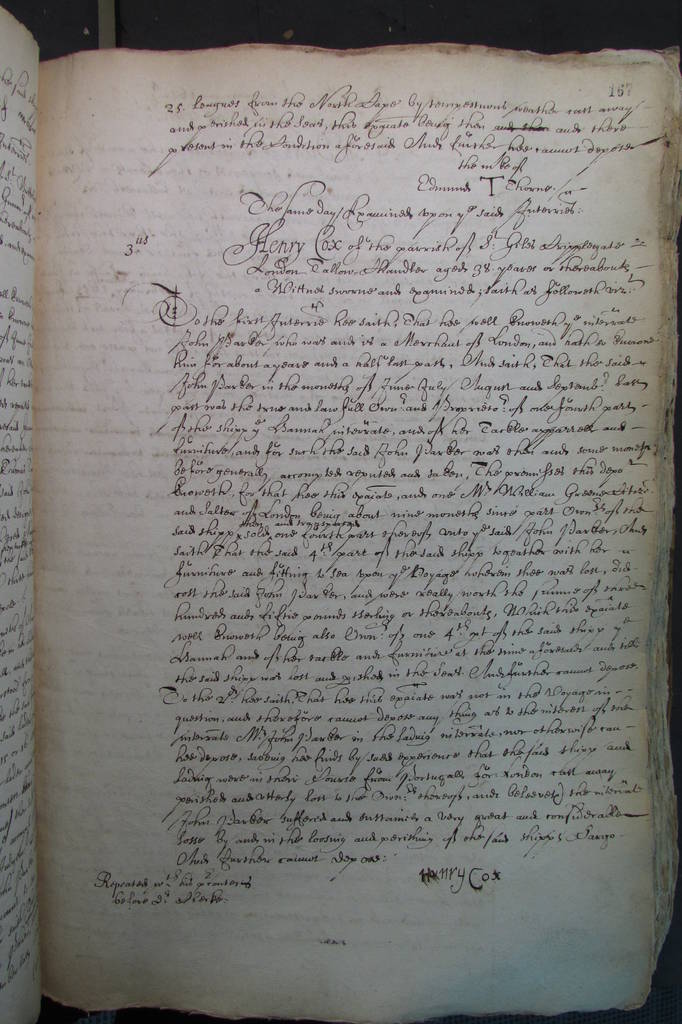 167
25. leagues from the North Cape by tempestuous weather cast away
and perished in the Seas, this exãiate being then and then and there
present in the Condition aforesaid And further hee cannot depose
the mke of
Edmund T Thorne
The same day Examined upon ye said Interries:
3us
Henry Cox of the parrish of St Giles Cripplegate
London Tallow Chandler aged 38. yeares or thereabouts
a Wittnes sworne and examined; saith as followeth vizt
To the first Interrie hee saith, That hee well knoweth ye interrate
John Parker who was and is a Merchant of London, and hath knowne
him for about a yeare and a half last past, And saith, That the said
John Parker in the moneths of June July August and Septembr last
past was the true and lawfull Ownr and Proprietor of one fourth part
of the shipp ye Hannah interrate, and of her Tackle apparrell and
furniture, and for such the said John Parker was then and some moneths
before generally accompted reputed and taken, The premisses this depot
knoweth, for that hee this exãiate, and one Mr William Greene Citizn
and Salter of London being about nine moneths since part Ownrs of the
then and
said shipp sold one fourth part thereof unto ye said John Parker, And
saith That the said 4th part of the said shipp together with her
furniture and fitting to sea upon ye Voyage wherein shee was lost, did
cost the said John Parker, and were really worth the summe of three
hundred and fiftie pounds sterling or thereabouts, Which this exãiate
well knoweth being also Ownr of one 4th pt of the said shipp ye
Hannah and of her tackle and furniture at the time aforesaid and till
the said shipp was lost and pished in the Seas. And further cannot depose.
To the 2d hee saith, That hee this exãiate was not in the Voyage in
question, and therefore cannot depose any thing as to the interest of the
interrate Mr John Parker in the lading interrate, nor otherwise can
hee depose, saving hee finds by sad experience that the said shipp and
lading were in their Course from Portugall for London cast away
perished and utterly lost to the Ownrs thereof, and beleeveth the interrate
John Parker suffered and sustained a very great and considerable
losse by and in the loosing and perishing of the said shipps Cargo.
And further cannot depose:
Repeated wth his
before Dr Clerke.
Henry Cox